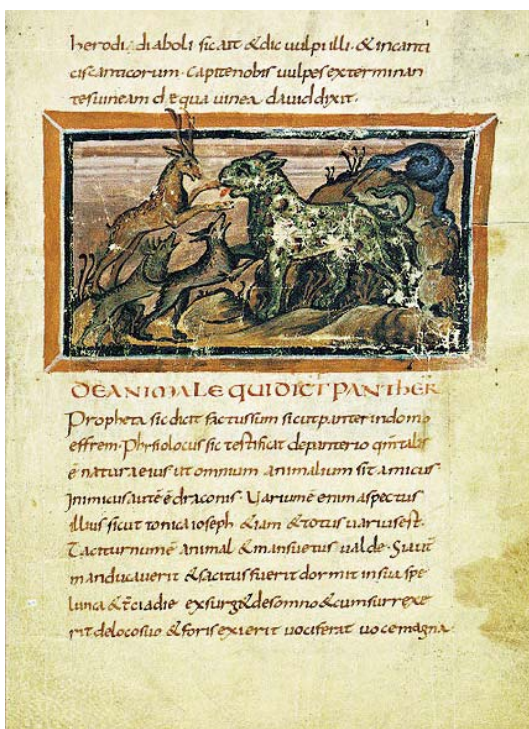 herodi, diaboli sicait & dic uulpi illi. & incanti
ciscanticorum. Capitenobis uulpes exterminan
tes uineam de qua uinea dauid dixit.
DE ANIMALE QUI DICT PANTHER
Propheta sic dicit factus sum sicut panter in domo
effrem. Phisiolocus sic testificat de panterio qm talis
ē natura eius ut omnium animalium sit amicus
Inimicus autē ē draconis. Uariumē enim aspectus
illius sicut tonica ioseph & iam & totus uarius est.
Taciturnumē animal & mansuetus ualde. Si aut
manducauerit & saciatus fuerit dormit in sua spe
lunca & tciadie exsurg& de somno & cum surrexe
rit de loco suo & foris exierit uociferat uoce magna